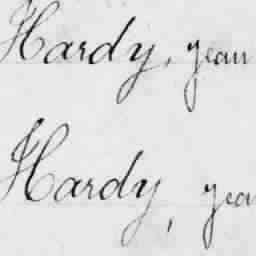 Hardy, jean
Hardy, jea